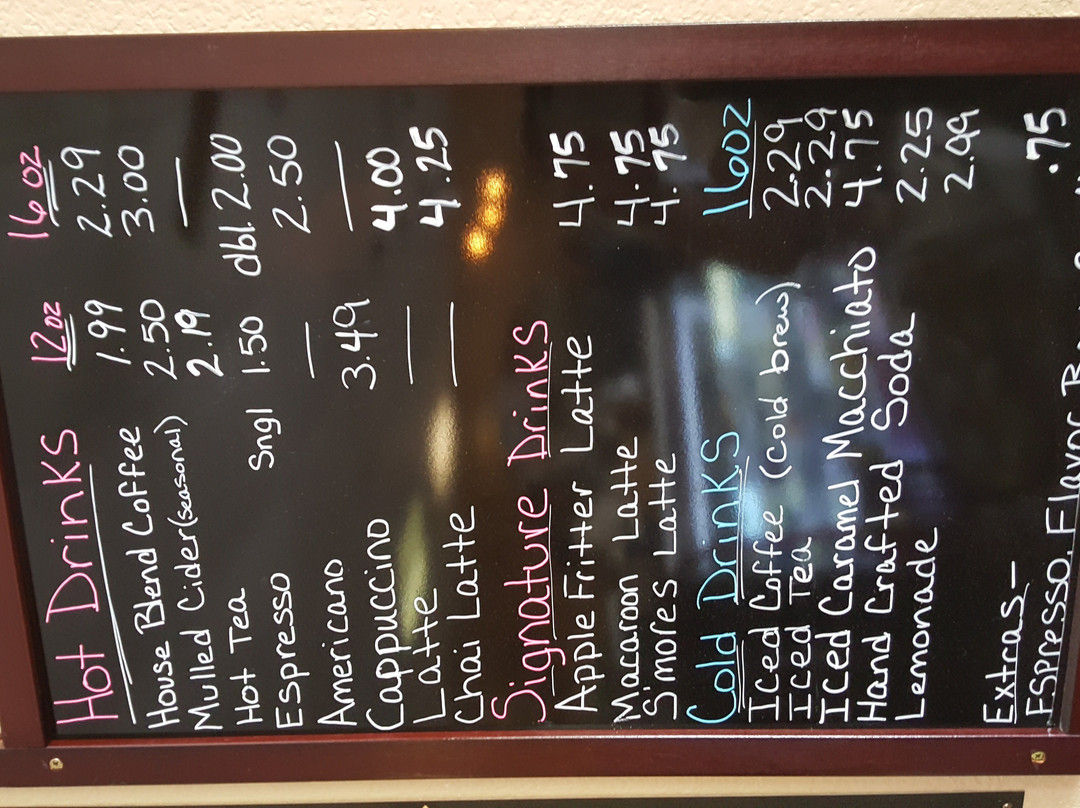 Hot Drinks 12oz 16oz
House Blend Coffee 1.99 2.29
Mulled Cider (seasonal) 2.50 3.00
Hot Tea 2.19 —
Espresso Sngl 1.50 dbl 2.00
Americano — 2.50
Cappuccino 3.49 —
Latte — 4.00
Chai Latte — 4.25
Signature Drinks
Apple Fritter Latte 4.75
Macaroon Latte 4.75
S'mores Latte 4.75
Cold Drinks 16oz
Iced Coffee (cold brew) 2.29
Iced Tea 2.29
Iced Caramel Macchiato 4.75
Hand Crafted Soda 2.25
Lemonade 2.99
Extras-
Espresso, Flavor .75